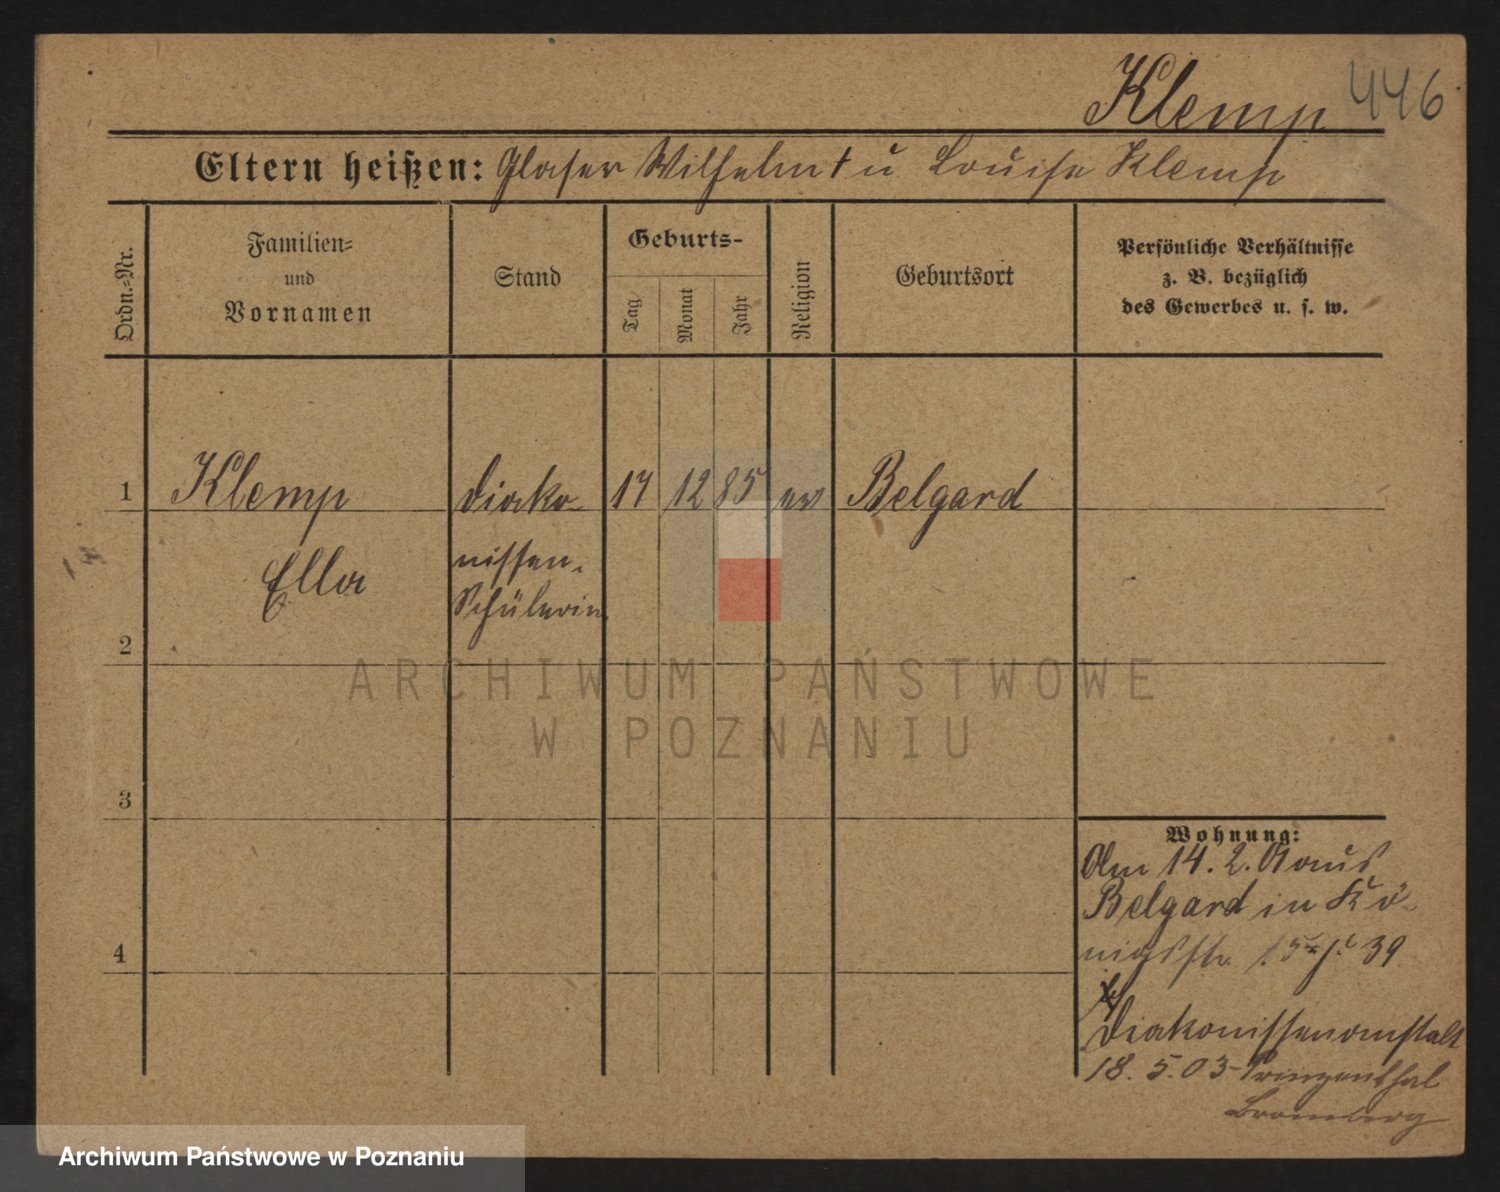 Klemp 446
Eltern heißen: Glaser Wilhelm † u Louise Klemp
Ordn.-Nr.
Familien-
und
Vornamen
Stand
Geburts-
Tag
Monat
Jahr
Religion
Geburtsort
Persönliche Verhältnisse
z. B. bezüglich
des Gewerbes u. s. w.
1 Klemp Diako- 17 12 85 ev Belgard
Ella nissen-
Schülerin
2
3
4
Wohnung:
Am 14. 2. 01 aus
Belgard in Kö-
nigsstr. 39
Diakonissenanstalt
18. 5. 03 Prinzenthal
Bromberg
ARCHIWUM PAŃSTWOWE
W POZNANIU
Archiwum Państwowe w Poznaniu